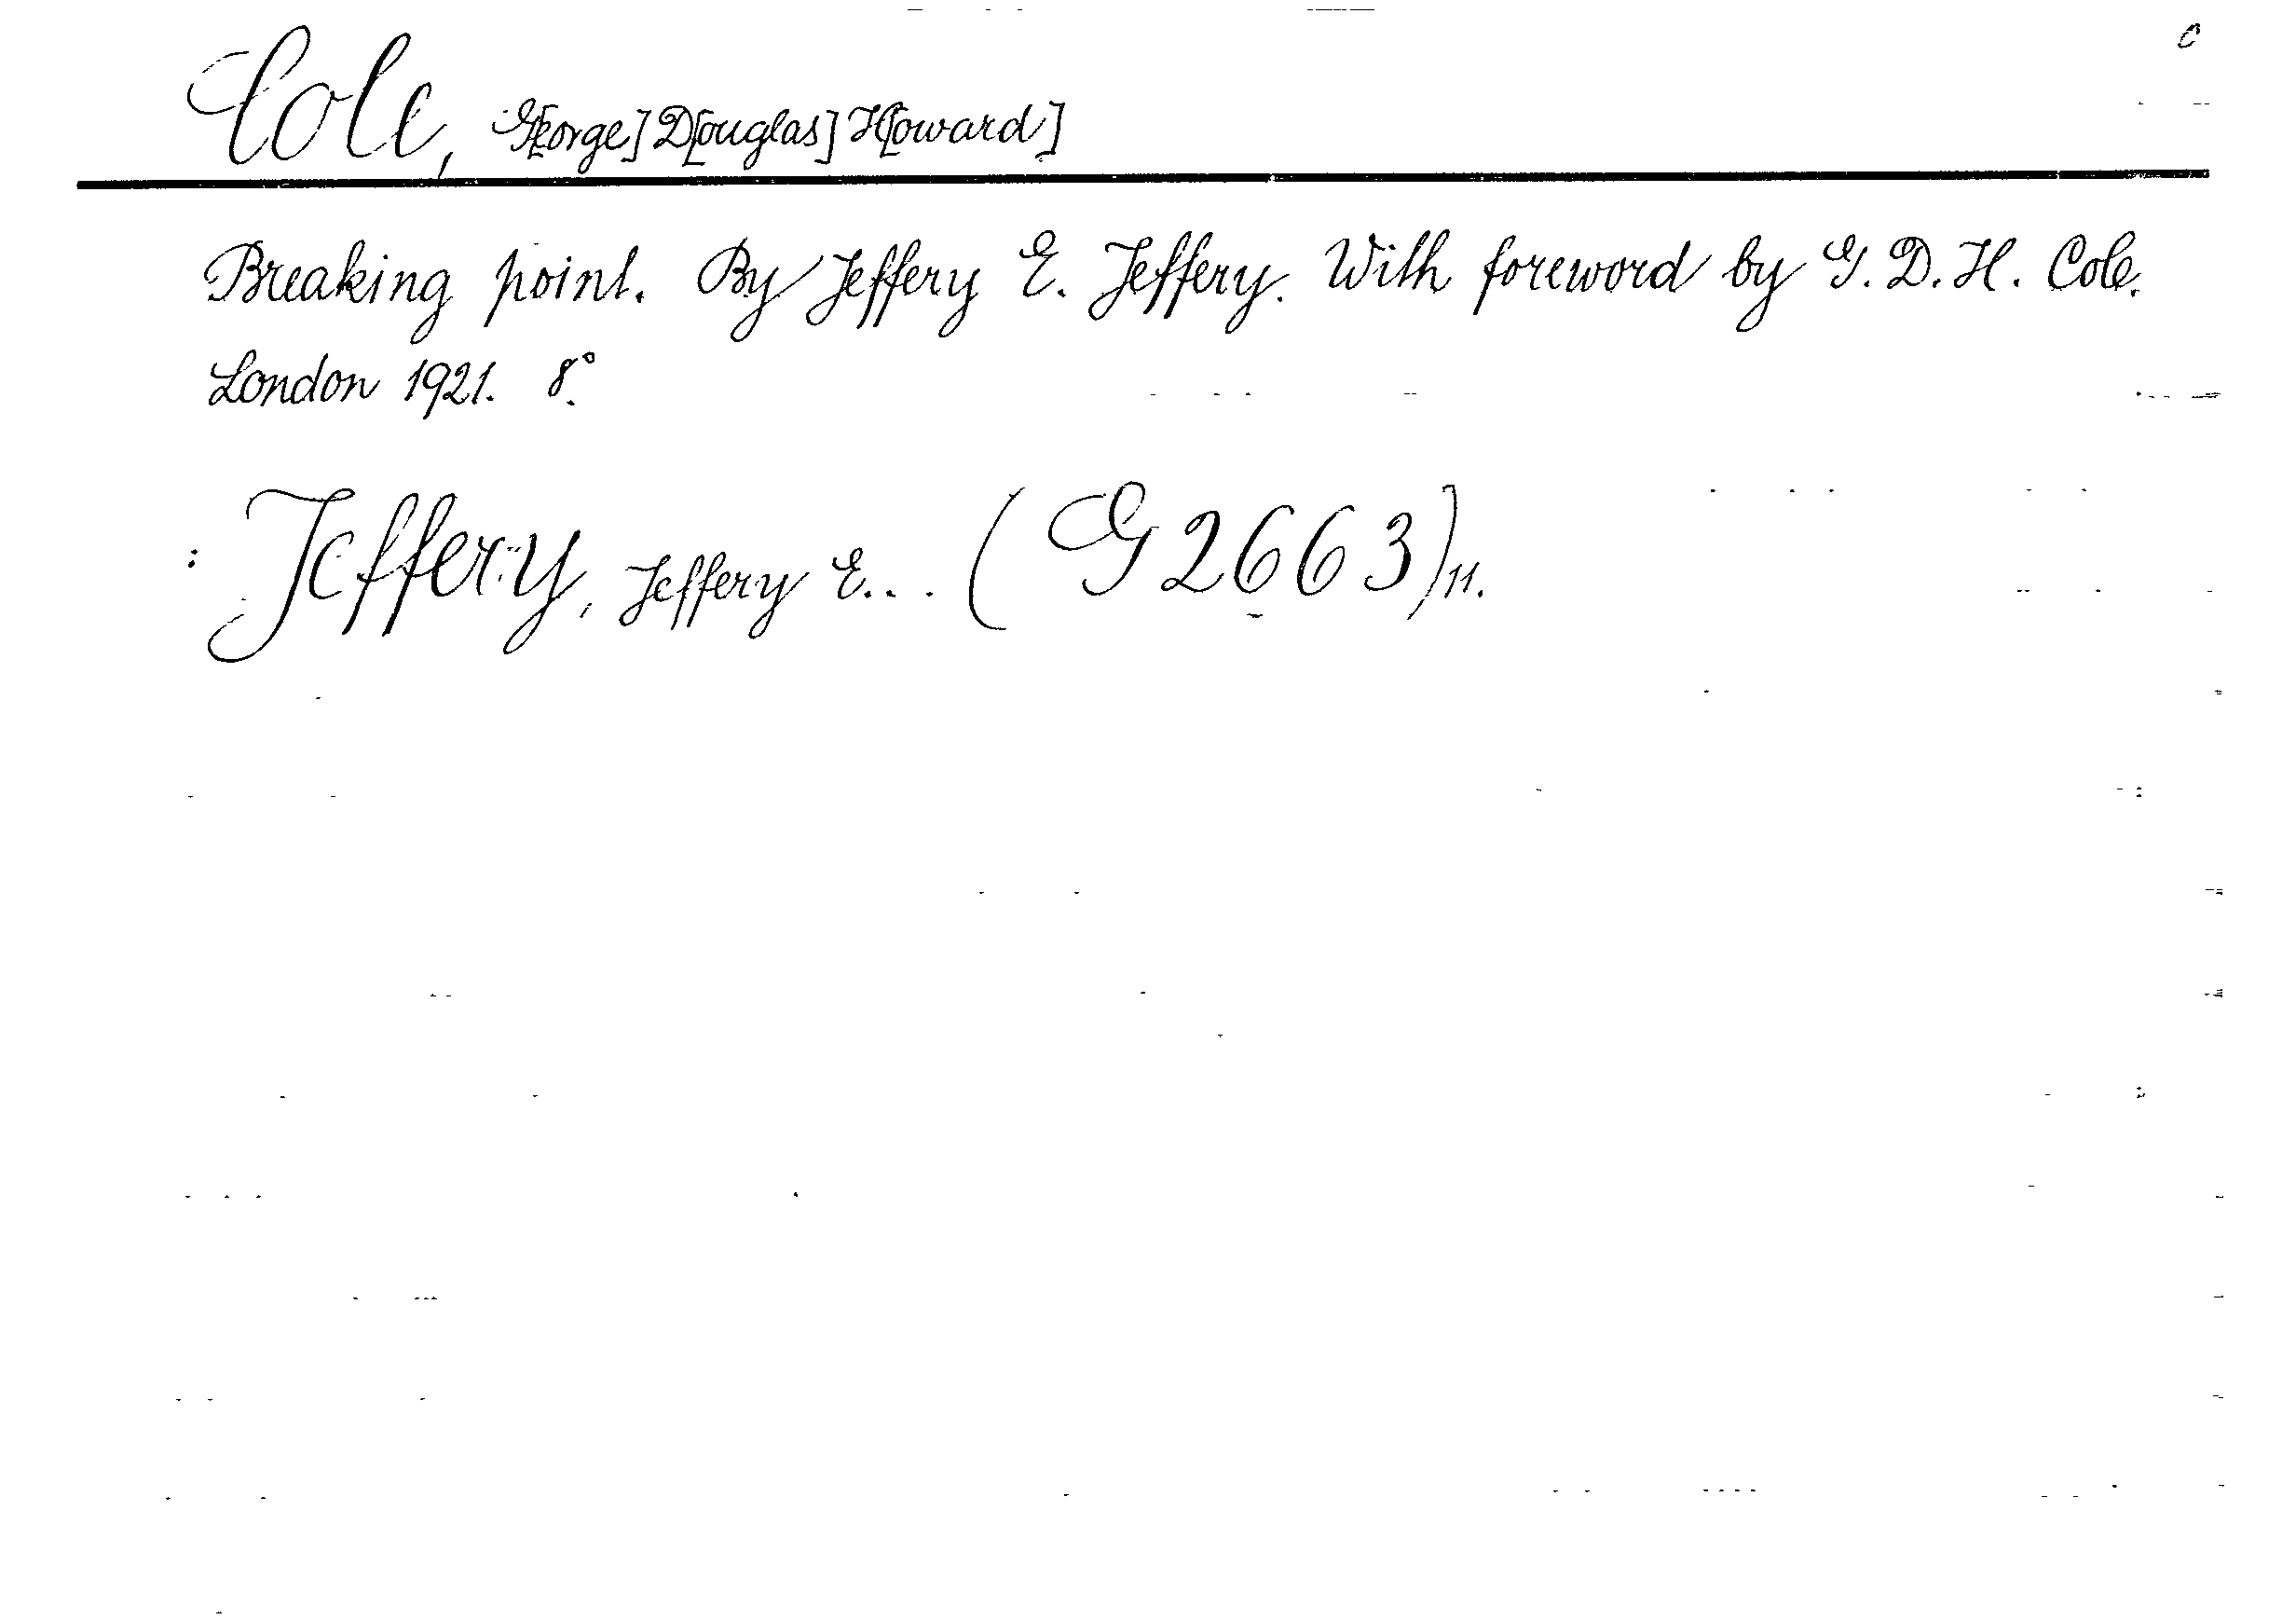 C
Cole, G[eorge] D[ouglas] H[oward]
Breaking point. By Jeffery E. Jeffery. With foreword by G. D. H. Cole.
London 1921. 8°.
: Jeffery, Jeffery E... (G 2663) 11.